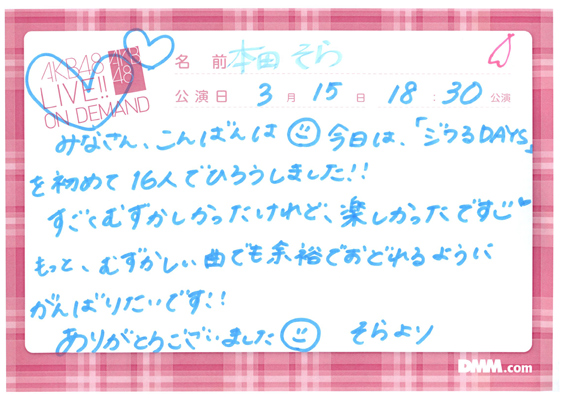 AKB48
LIVE!!
ON DEMAND
AKB
48
名 前 本田 そら
公演日 3 月 15 日 18 : 30 公演
みなさん、こんばんは 今日は、「ジワるDAYS」
を初めて 16人でひろうしました!!
すごくむずかしかったけれど、楽しかったですご
もっと、むずかしい曲でも余裕でおどれるように
がんばりたいです!!
ありがとうございました そらより
DMM.com